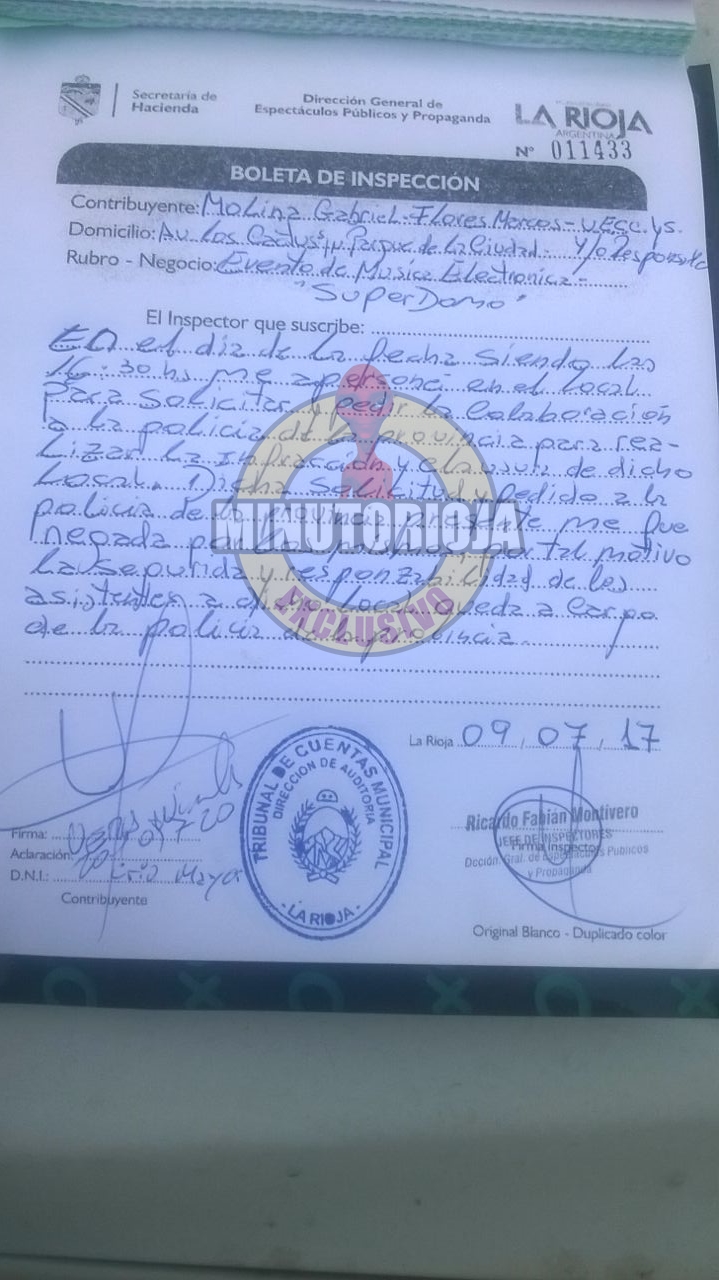 Secretaría de
Hacienda
Dirección General de
Espectáculos Públicos y Propaganda
LA RIOJA
ARGENTINA
N° 011433
BOLETA DE INSPECCIÓN
Contribuyente: Molina Gabriel - Flores Marcos -
Domicilio: Av. Los Cactus Parque de la Ciudad. y/o Responsable
Rubro - Negocio: Evento de Musica Electronica -
"SuperDomo"
El Inspector que suscribe:
En el dia de la fecha siendo las
16:30 hs me apersona en el local
para solicitar y pedir la colaboración
a la policia de la provincia para rea-
lizar la infracción y clausura de dicho
Local. Dicha solicitud y pedido a la
policia de la provincia presente me fue
negada por la por tal motivo
la seguridad y responzabilidad de los
asistentes a dicho local queda a cargo
de la policia de la provincia.
MINUTORIOJA
EXCLUSIVO
La Rioja 09, 07, 17
TRIBUNAL DE CUENTAS MUNICIPAL
DIRECCION DE AUDITORIA
- LA RIOJA -
Ricardo Fabián Montivero
JEFE DE INSPECTORES
Firma Inspector
Dcción. Gral. de Espectáculos Publicos
y Propaganda
Firma:
Aclaración:
D.N.I.: Crio Mayor
Contribuyente
Original Blanco - Duplicado color